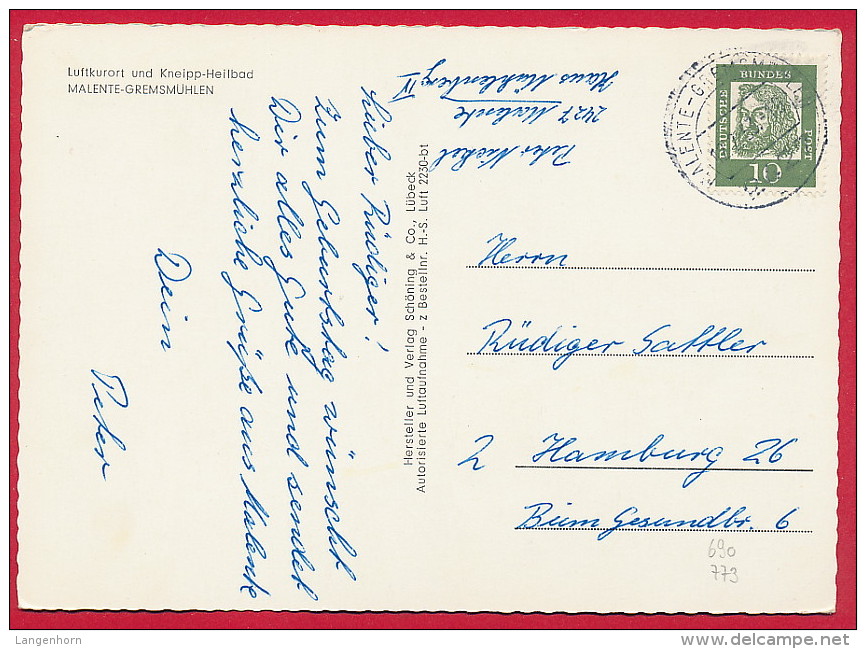 Luftkurort und Kneipp-Heilbad
MALENTE-GREMSMÜHLEN
Peter Nickel
2427 Malente
Haus Mühlenberg IV
Lieber Rüdiger!
Zum Geburtstag wünscht
Dir alles Gute und sendet
herzliche Grüße aus Malente
Dein
Peter
Hersteller und Verlag Schöning & Co., Lübeck
Autorisierte Luftaufnahme - z Bestellnr. H.-S. Luft 2230-bt
DEUTSCHE BUNDES POST
10
MALENTE-GREMSMÜHLEN
Herrn
Rüdiger Sattler
2 Hamburg 26
Beim Gesundbr. 6
690
773
Langenhorn
delcampe.net